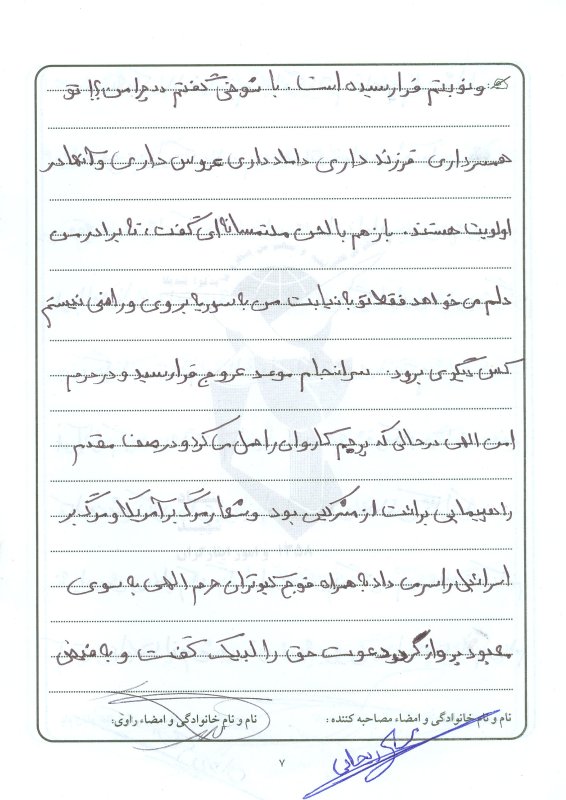 ونوبتم فرارسیده است. با شوخی گفتم چرا من؟! تو
همسرداری فرزند داری داماد داری عروس داری و آنها در
اولویت هستند. بازهم با لحن ملتمسانه‌ای گفت، نه برادر من
دلم می‌خواهد فقط تو به نیابت من به سوریه بروی و راضی نیستم
کس دیگری برود. سرانجام موعد عروج فرارسید و در حرم
امن الهی در حالی که پرچم کاروان را حمل می‌کرد و در صف مقدم
راهپیمایی برائت از مشرکین بود و شعار مرگ بر آمریکا و مرگ بر
اسرائیل را سر می داد به همراه فوج کبوتران حرم الهی به سوی
معبود پرواز کرد و دعوت حق را لبیک گفت و به فیض
نام و نام خانوادگی و امضاء مصاحبه کننده :
نام و نام خانوادگی و امضاء راوی:
۷